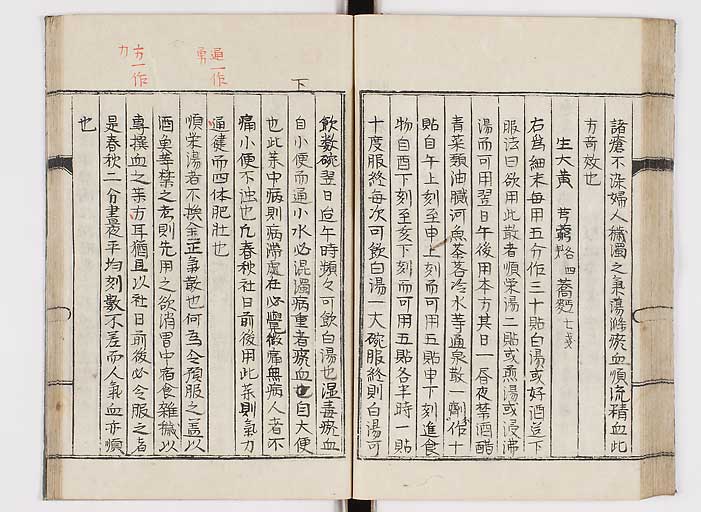 諸瘡不染婦人穢濁之氣蕩滌瘀血順流精血此
方奇效也
生大黄 芎藭 各四 蕎麪 七戔
右爲細末每用五分作三十貼白湯或好酒送下
服法曰欲用此散者順榮湯二貼或煎湯或浸沸
湯而可用翌日午後用本方其日一昼夜禁酒醋
青菜類油膩河魚茶茗冷水等通泉散一劑作十
貼自午上刻至申上刻而可用五貼申下刻進食
物自酉下刻至亥下刻而可用五貼各半時一貼
十度服終每次可飲白湯一大碗服終則白湯可
飲数碗翌日迨午時頻々可飲白湯也湿毒瘀血
自小便而通小水必混濁病重者瘀血也自大便
也此菜中病則病滞處在必覺微痛無病人者不
痛小便不浊也凡春秋社日前後用此菜則氣力
逼健而四体肥壮也
順榮湯者不換金正氣散也何爲令預服之盖以
酒菓等禁之者則先用之欲消胃中宿食雜穢以
專撰血之菜方耳猶且以社日前後必令服之者
是春秋二分晝夜平均刻數不差而人氣血亦順
也
下
逼一作
勇
方一作
力